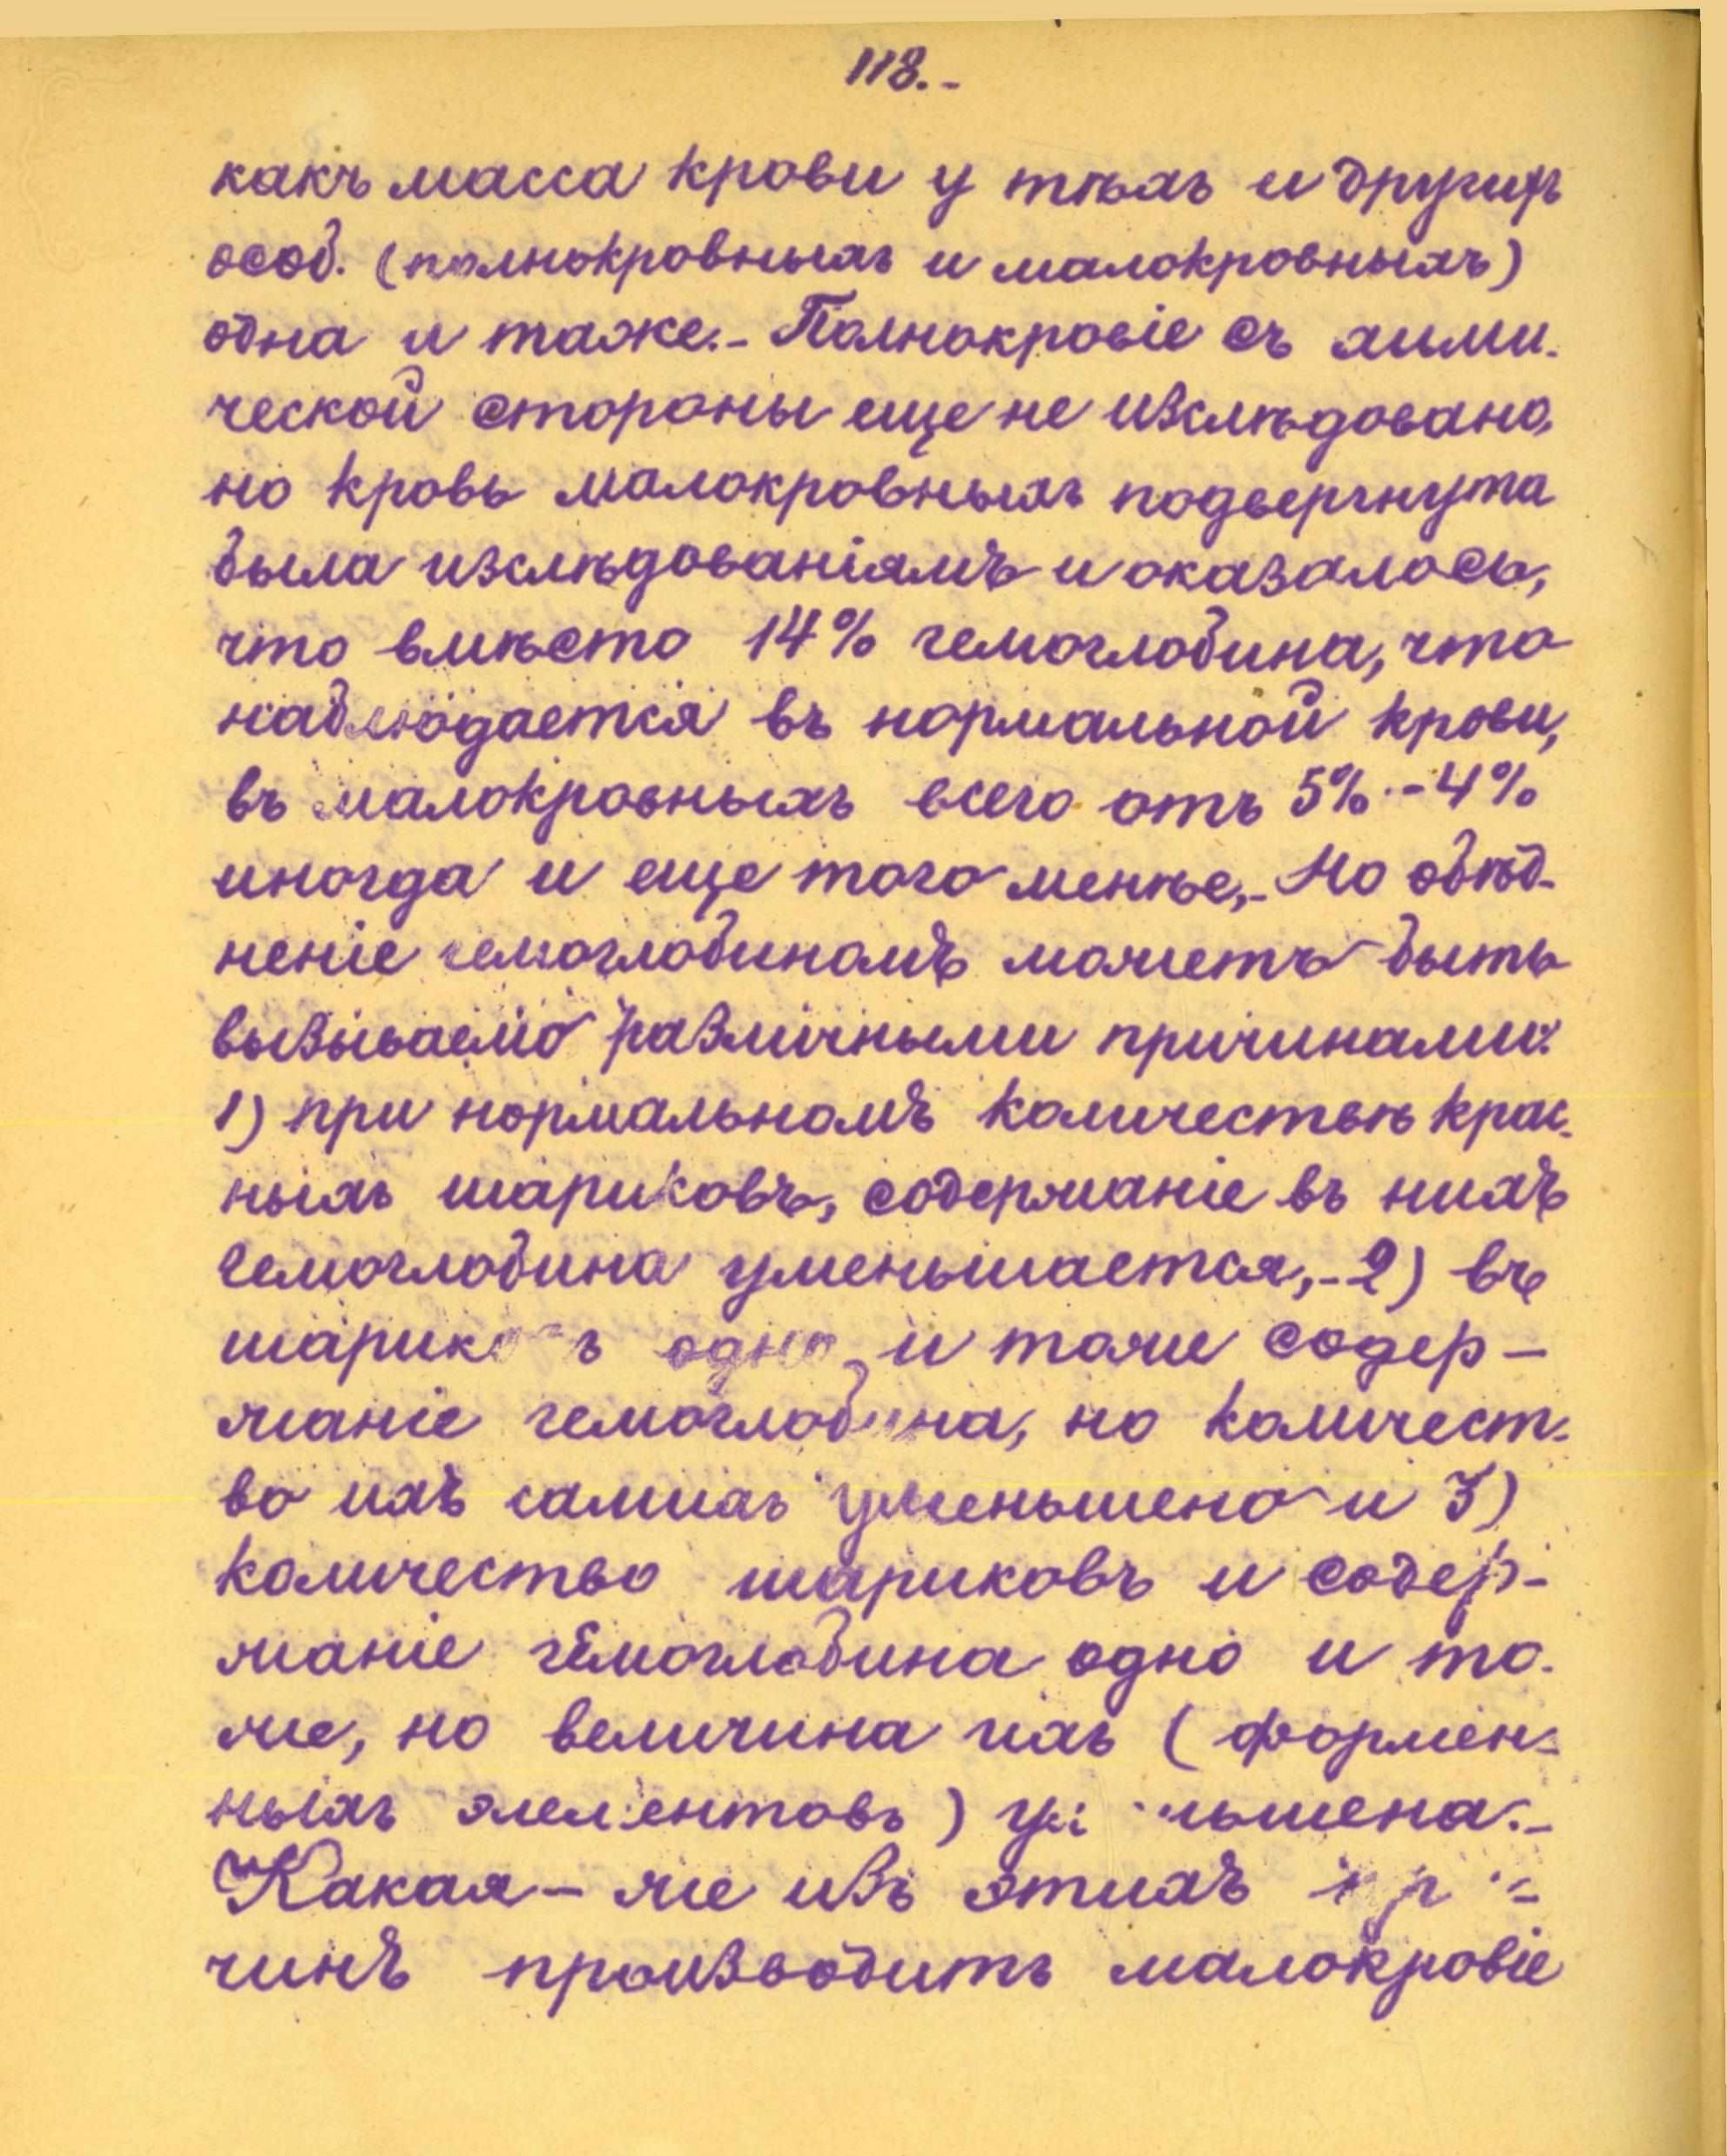 118.-
какъ масса крови у тѣхъ и другихъ
особ. (полнокровныхъ и малокровныхъ)
одна и таже.- Полнокровіе съ хими-
ческой стороны еще не изслѣдовано,
но кровь малокровныхъ подвергнута
была изслѣдованіямъ и оказалось,
что вмѣсто 14% гемоглобина, что
наблюдается въ нормальной крови,
въ малокровныхъ всего отъ 5% - 4%
иногда и еще того менѣе,- Но обѣд-
неніе гемоглобиномъ можетъ быть
вызываемо различными причинами:
1) при нормальномъ количествѣ крас-
ныхъ шариковъ, содержаніе въ нихъ
гемоглобина уменьшается,- 2) въ
одно и тоже содер-
жаніе гемоглобина, но количест-
во ихъ самихъ уменьшено и 3)
количество шариковъ и содер-
жаніе гемоглобина одно и то-
же, но величина ихъ (формен-
ныхъ элементовъ) уменьшена.-
Какая - же изъ этихъ при-
чинъ производитъ малокровіе